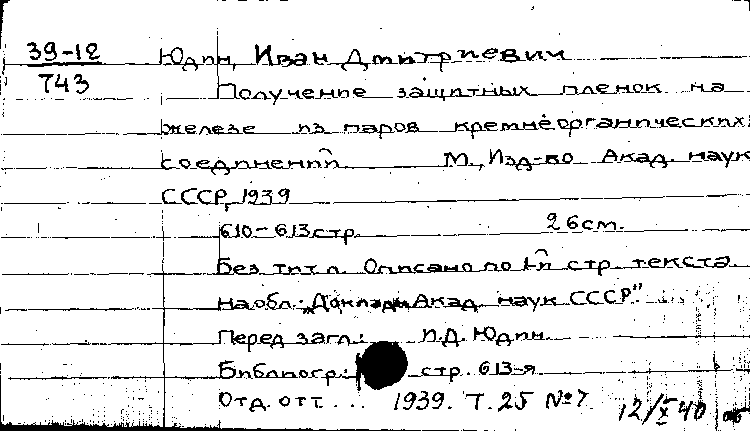 39-12
Т43
Юдин, Иван Дмитриевич
Получение защитных пленок на
железе из паров кремнеорганических
соединений М., Изд-во Акад. наук
СССР, 1939
610-613 стр. 26 см.
Без тит. л. Описано по 1-й стр. текста.
На обл.: "Доклады Акад. наук СССР."
Перед загл.: И.Д. Юдин.
Библиогр.: стр. 613-я
Отд. отт. ... 1939. Т. 25 №7.
12/X 40